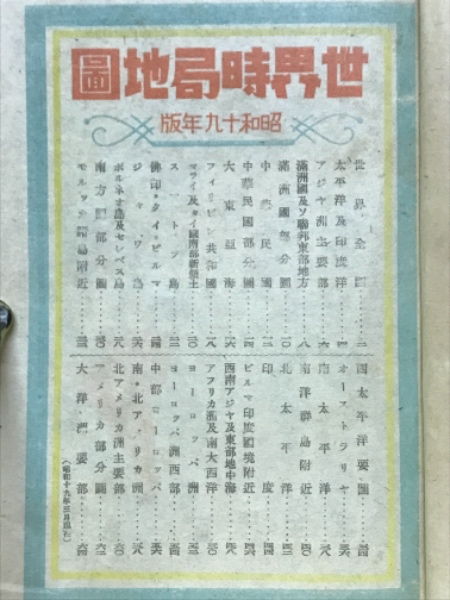 世界時局地圖
昭和十九年版
世界全圖……二
太平洋及印度洋……四
アジヤ洲主要部……六
滿洲國及ソ聯邦東部地方……八
滿洲國部分圖……一〇
中華民國……一二
中華民國部分圖……一四
大東亞海……一六
フィリピン共和國……一八
マライ及タイ國南部新領土……二〇
スマトラ島……二二
佛印・タイ・ビルマ……二四
ジャワ島……二六
ボルネオ島及セレベス島……二八
南方圈部分圖……三〇
モルッカ諸島附近……三二
西太平洋要圖……三四
オーストラリヤ……三六
南太平洋……三八
南洋群島附近……四〇
北太平洋……四二
印度……四四
ビルマ印度國境附近……四六
西南アジヤ及東部地中海……四八
アフリカ洲及南大西洋……五〇
ヨーロッパ洲……五二
ヨーロッパ洲西部……五四
中部ヨーロッパ……五六
南・北アメリカ洲……五八
北アメリカ洲主要部……六〇
アメリカ部分圖……六二
大洋洲要部……六四
(昭和十九年三月現在)